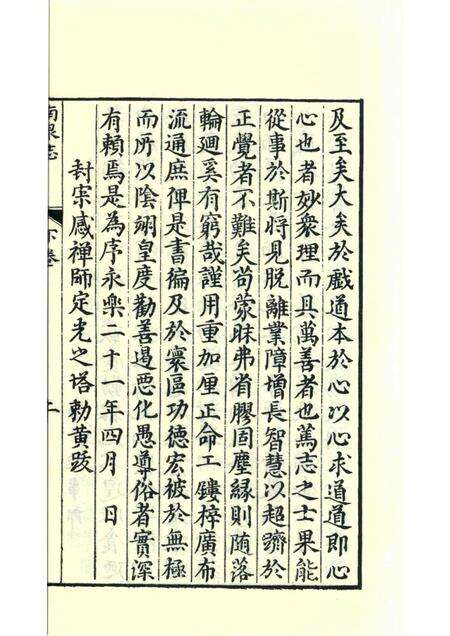 及至矣大矣於戲道本於心以心求道道即心
心也者妙衆理而具萬善者也篤志之士果能
從事於斯將見脱離業障增長智慧以超躋於
正覺者不難矣苟蒙昧弗省膠固塵緣則随落
輪廻奚有窮哉謹用重加厘正命工鏤梓廣布
流通庶俾是書徧及於寰區功德宏被於無極
而所以陰翊皇度勸善遏惡化愚導俗者實深
有賴焉是為序永樂二十一年四月　日
封宲感禅師定光之塔勅黄跋
南泉志
下卷
二